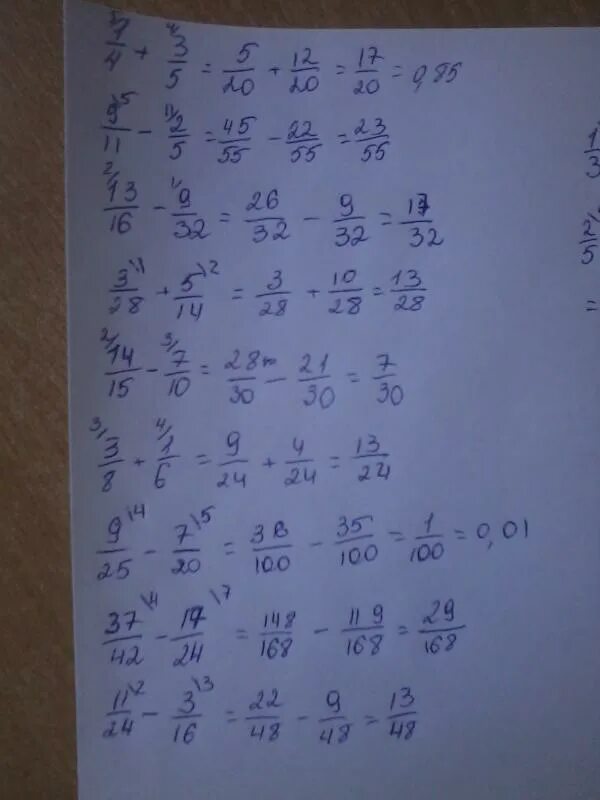 5/ 1/4 + 4/ 3/5 = 5/20 + 12/20 = 17/20 = 0,85
9\5/11 - 11/ 2/5 = 45/55 - 22/55 = 23/55
2/ 13/16 - 1/ 9/32 = 26/32 - 9/32 = 17/32
3\1/28 + 5\2/14 = 3/28 + 10/28 = 13/28
2/ 14/15 - 3/ 7/10 = 28/30 - 21/30 = 7/30
3/ 3/8 + 4/ 1/6 = 9/24 + 4/24 = 13/24
9\4/25 - 7\5/20 = 36/100 - 35/100 = 1/100 = 0,01
37\4/42 - 17\7/24 = 148/168 - 119/168 = 29/168
11\2/24 - 3\3/16 = 22/48 - 9/48 = 13/48
1/3
2/5
=